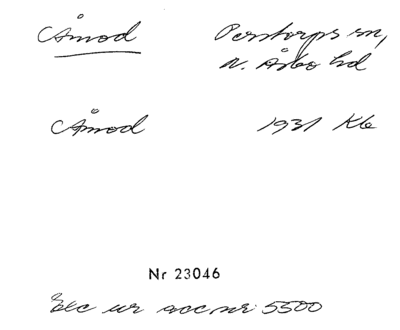 Åmod Perstorps sn,
N. Åsbo hd
Åmod 1931 Kb
Nr 23046
Exc ur acc nr 5500